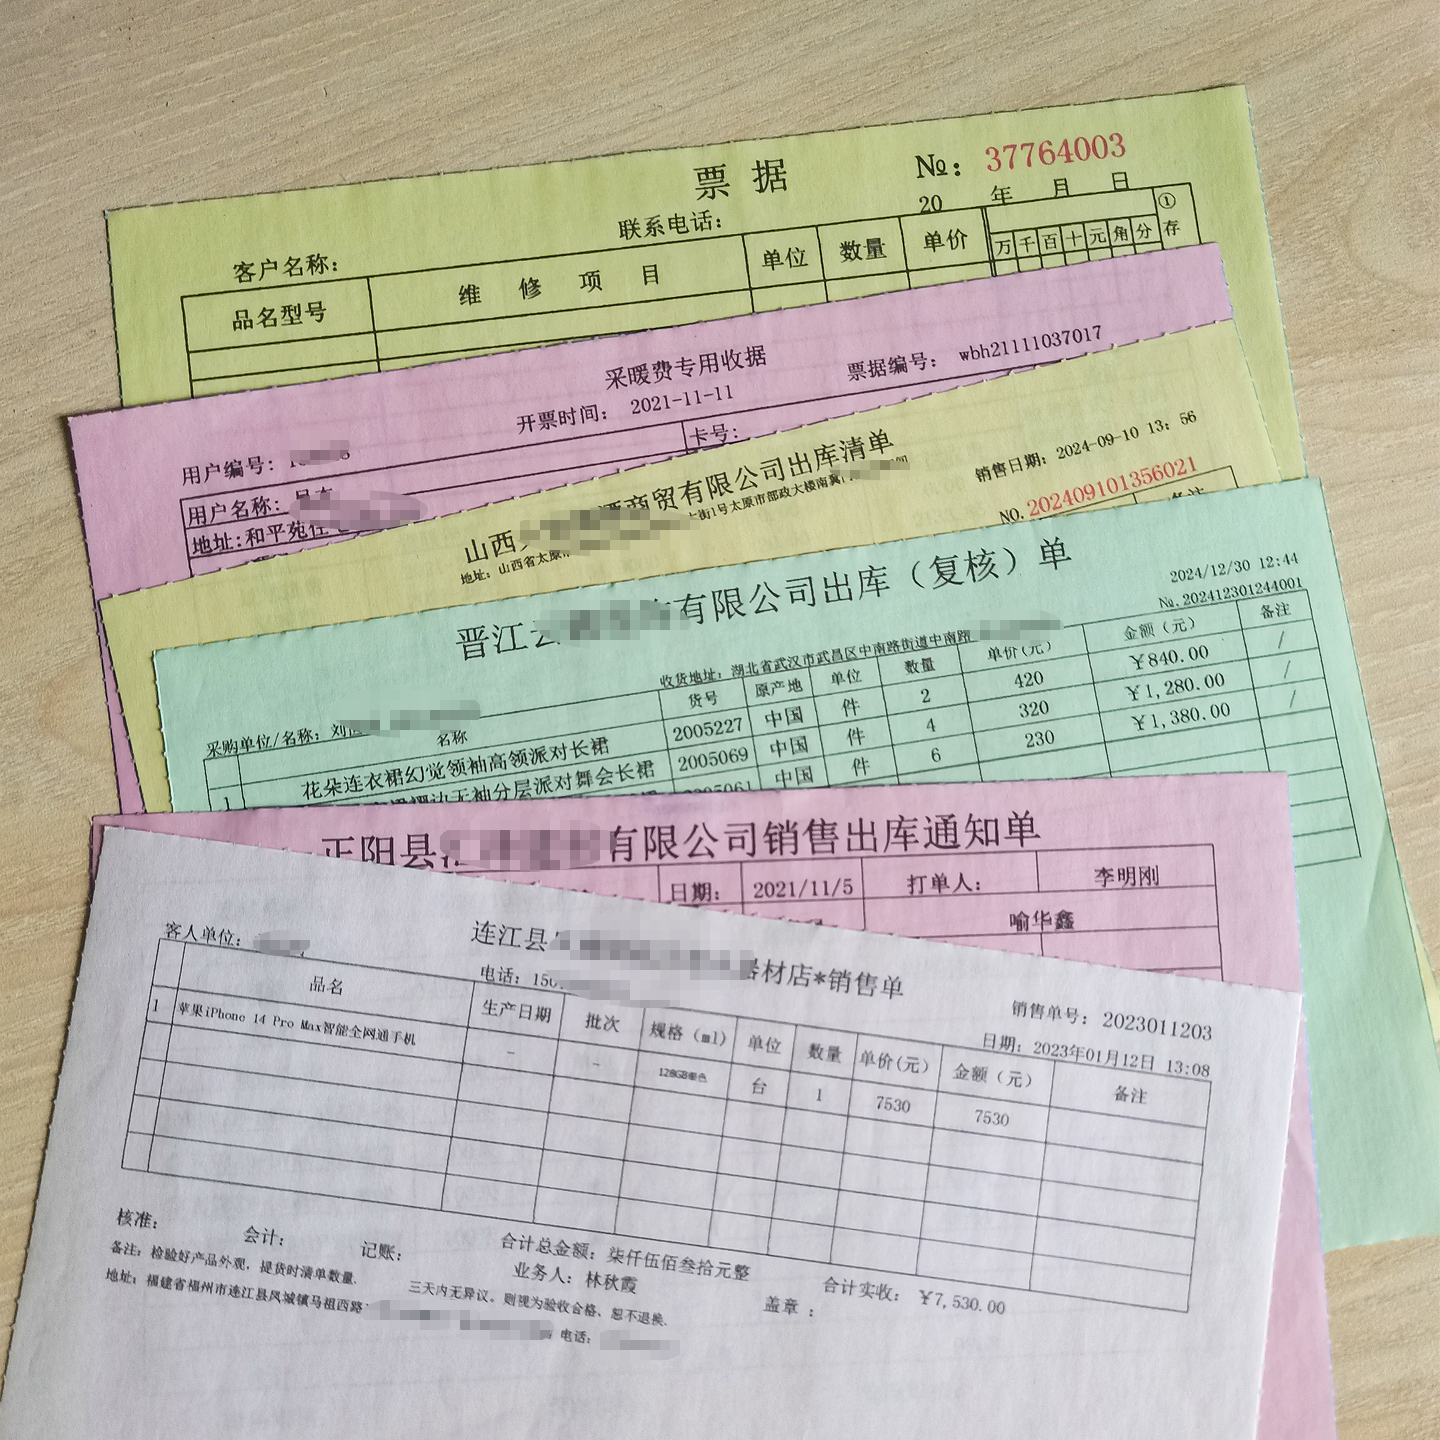 票据
№: 37764003
联系电话:
20 年 月 日
客户名称:
品名型号 维修项目 单位 数量 单价 万千百十元角分
①存
采暖费专用收据
开票时间: 2021-11-11
票据编号: wbh21111037017
用户编号:
卡号:
用户名称:
地址:和平苑住
山西 商贸有限公司出库清单
地址: 山西省太原 大街1号太原市邮政大楼南
销售日期: 2024-09-10 13: 56
NO. 202409101356021
备注
晋江云 有限公司出库（复核）单
2024/12/30 12:44
№. 202412301244001
收货地址: 湖北省武汉市武昌区中南路街道中南路
采购单位/名称: 刘
名称 货号 原产地 单位 数量 单价(元) 金额（元） 备注
1 花朵连衣裙幻觉领袖高领派对长裙 2005227 中国 件 2 420 ¥840.00 /
无袖分层派对舞会长裙 2005069 中国 件 4 320 ¥1,280.00 /
中国 件 6 230 ¥1,380.00 /
正阳县 有限公司销售出库通知单
日期: 2021/11/5 打单人: 李明刚
喻华鑫
连江县 器材店*销售单
客人单位:
电话: 150
销售单号: 2023011203
日期: 2023年01月12日 13:08
品名 生产日期 批次 规格（ml） 单位 数量 单价(元) 金额（元） 备注
1 苹果iPhone 14 Pro Max智能全网通手机 - - 台 1 7530 7530
核准: 会计: 记账: 合计总金额: 柒仟伍佰叁拾元整 合计实收: ¥7,530.00
业务人: 林秋霞 盖章 :
备注: 检验好产品外观, 提货时清单数量. 三天内无异议。则视为验收合格、恕不退换.
地址: 福建省福州市连江县凤城镇马祖西路 电话: